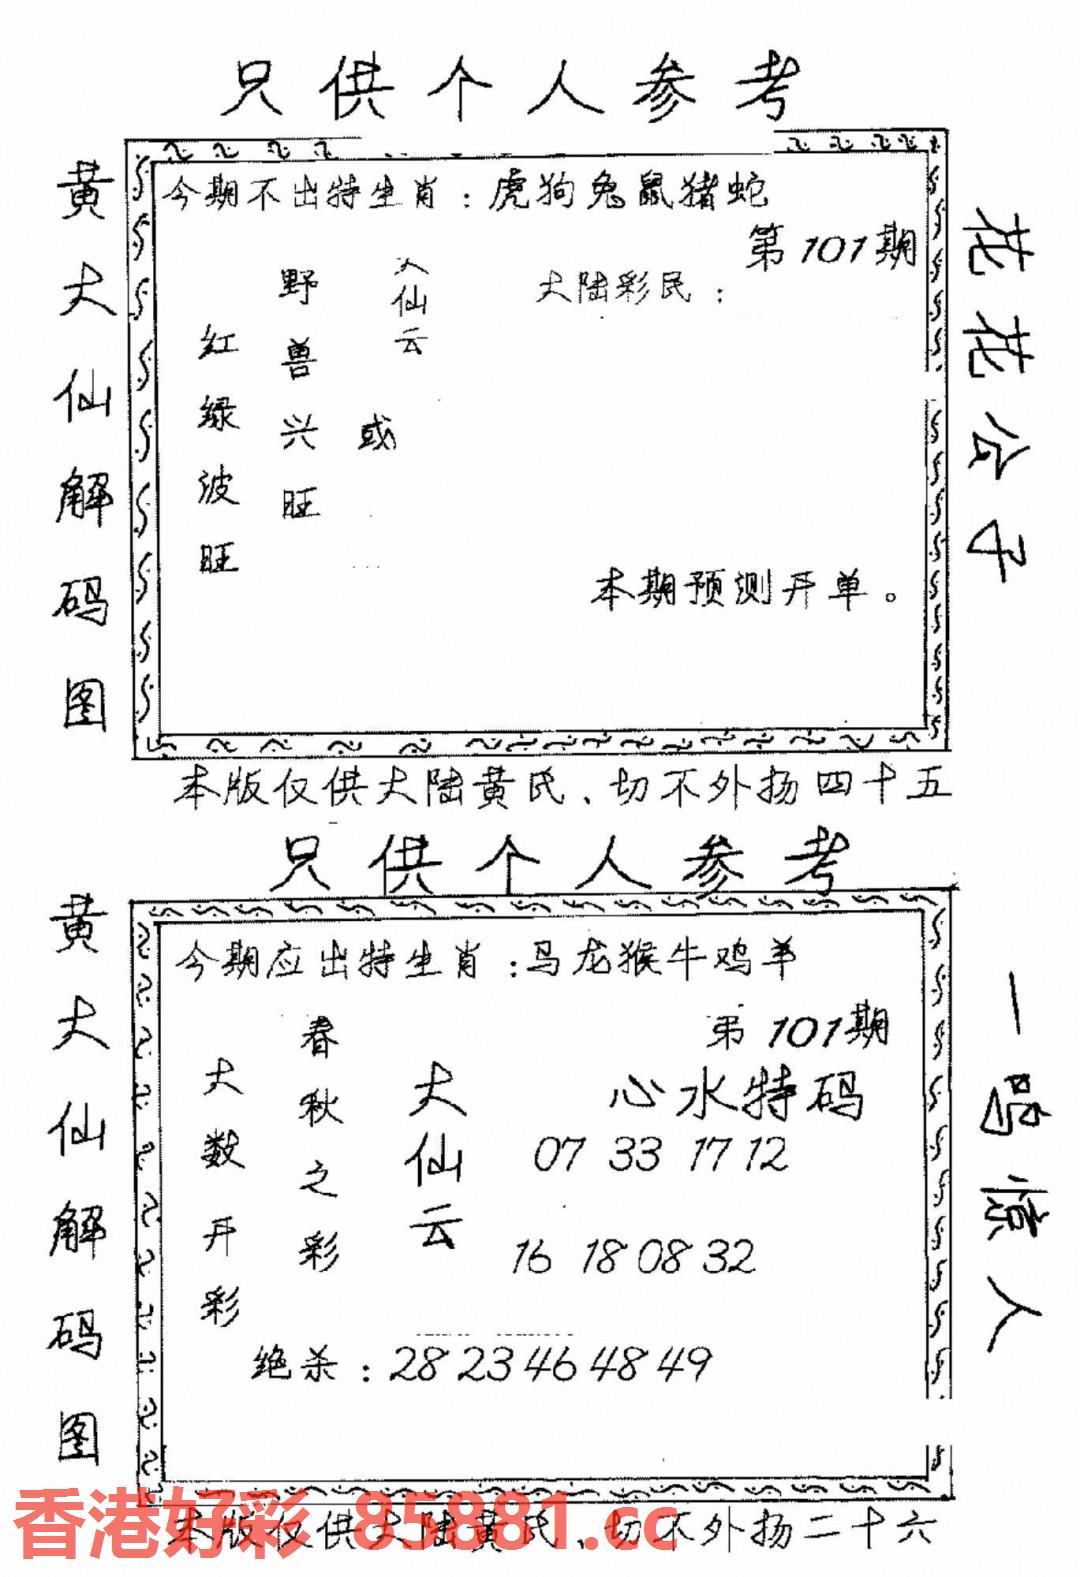 只供个人参考
黄大仙解码图
今期不出特生肖：虎狗兔鼠猪蛇
第101期
大仙云
大陆彩民：
野兽兴旺
或
红绿波旺
本期预测开单。
花花公子
本版仅供大陆黄氏、切不外扬四十五
只供个人参考
黄大仙解码图
今期应出特生肖：马龙猴牛鸡羊
第101期
春秋之彩
大数开彩
大仙云
心水特码
07 33 17 12
16 18 08 32
绝杀：28 23 46 48 49
一鸣惊人
本版仅供大陆黄氏、切不外扬二十六
香港好彩 85881.cc